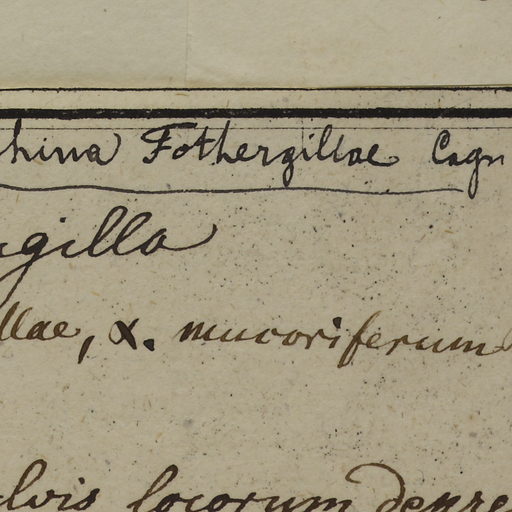 hina Fothergillae Cagn
gilla
llae, α. mucoriferum
lvis locorum depre